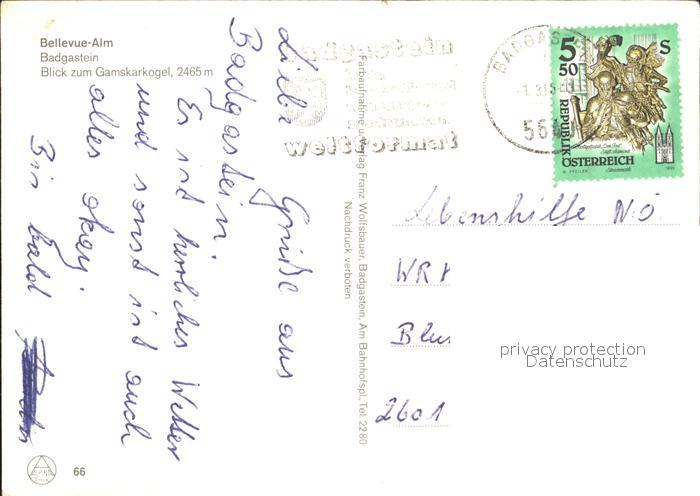 Bellevue-Alm
Badgastein
Blick zum Gamskarkogel, 2465 m
Liebe Grüße aus
Badgastein.
Es ist herrliches Wetter
und sonst ist auch
alles okay.
Bis bald
66
Farbaufnahme u. Verlag Franz Wolfsbauer, Badgastein, Am Bahnhofspl., Tel. 2280
Nachdruck verboten
badgastein
weltformat
BADGAS
5
50
S
REPUBLIK
ÖSTERREICH
Lebenshilfe N.Ö.
WR
Blu
2601
privacy protection
Datenschutz